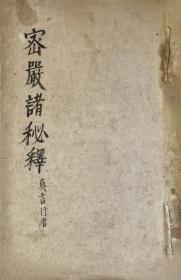 密嚴諸秘釋
真言行者